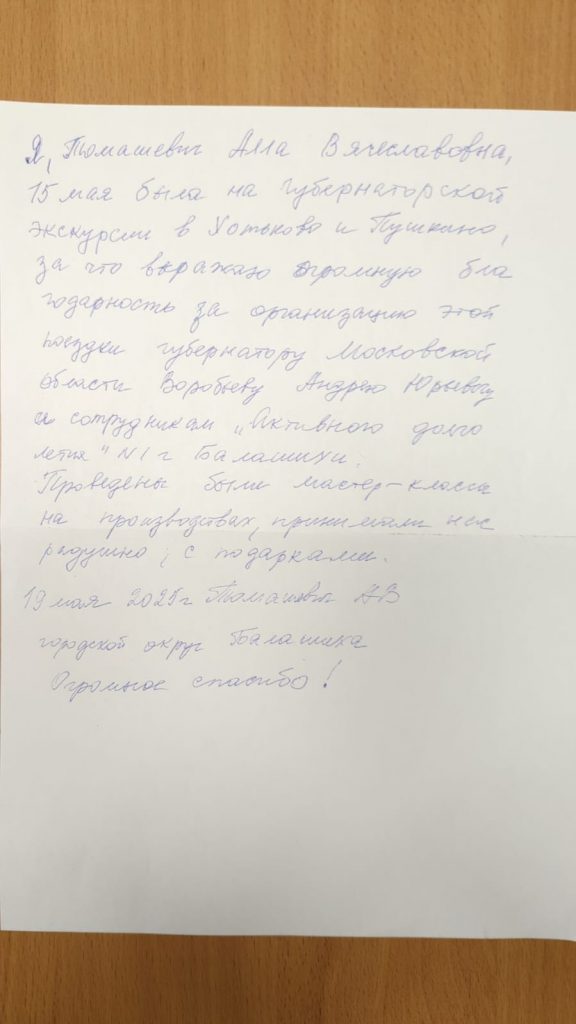 Я, Томашевич Алла Вячеславовна,
15 мая была на Губернаторской
экскурсии в Хотьково и Пушкино,
за что выражаю огромную бла
годарность за организацию этой
поездки губернатору Московской
области Воробьеву Андрею Юрьевичу
и сотрудникам "Активного долго
летия" N1 г Балашихи.
Проведены были мастер-класса
на производствах, принимали нас
радушно, с подарками.
19 мая 2025г Томашевич АВ
городской округ Балашиха
Огромное спасибо!